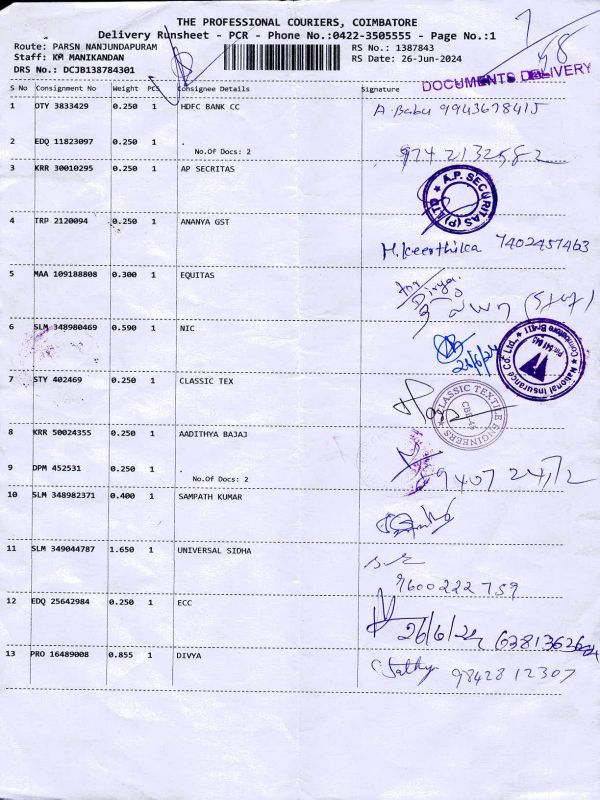 THE PROFESSIONAL COURIERS, COIMBATORE
Delivery Runsheet - PCR - Phone No.:0422-3505555 - Page No.:1
Route: PARSN NANJUNDAPURAM RS No.: 1387843
Staff: KM MANIKANDAN RS Date: 26-Jun-2024
DRS No.: DCJB138784301
DOCUMENTS DELIVERY
S No Consignment No Weight PCS Consignee Details Signature
1 OTY 3833429 0.250 1 HDFC BANK CC A. Babu 9943678415
2 EDQ 11823097 0.250 1 . 9742132582
No.Of Docs: 2
3 KRR 30010295 0.250 1 AP SECRITAS
A.P. SECURITAS (P) LTD.
4 TRP 2120094 0.250 1 ANANYA GST
M. Keerthika 7402457463
5 MAA 109188808 0.300 1 EQUITAS
Divya
(Staff)
6 SLM 348980469 0.590 1 NIC
26/6/24
National Insurance Co. Ltd.,
7 STY 402469 0.250 1 CLASSIC TEX
CLASSIC TEXTILE ENGINEERS
CBE-45
8 KRR 50024355 0.250 1 AADITHYA BAJAJ
9 DPM 452531 0.250 1 .
No.Of Docs: 2
10 SLM 348982371 0.400 1 SAMPATH KUMAR
11 SLM 349044787 1.650 1 UNIVERSAL SIDHA
9600222759
12 EDQ 25642984 0.250 1 ECC
26/6/24
13 PRO 16489008 0.855 1 DIVYA
9842812307